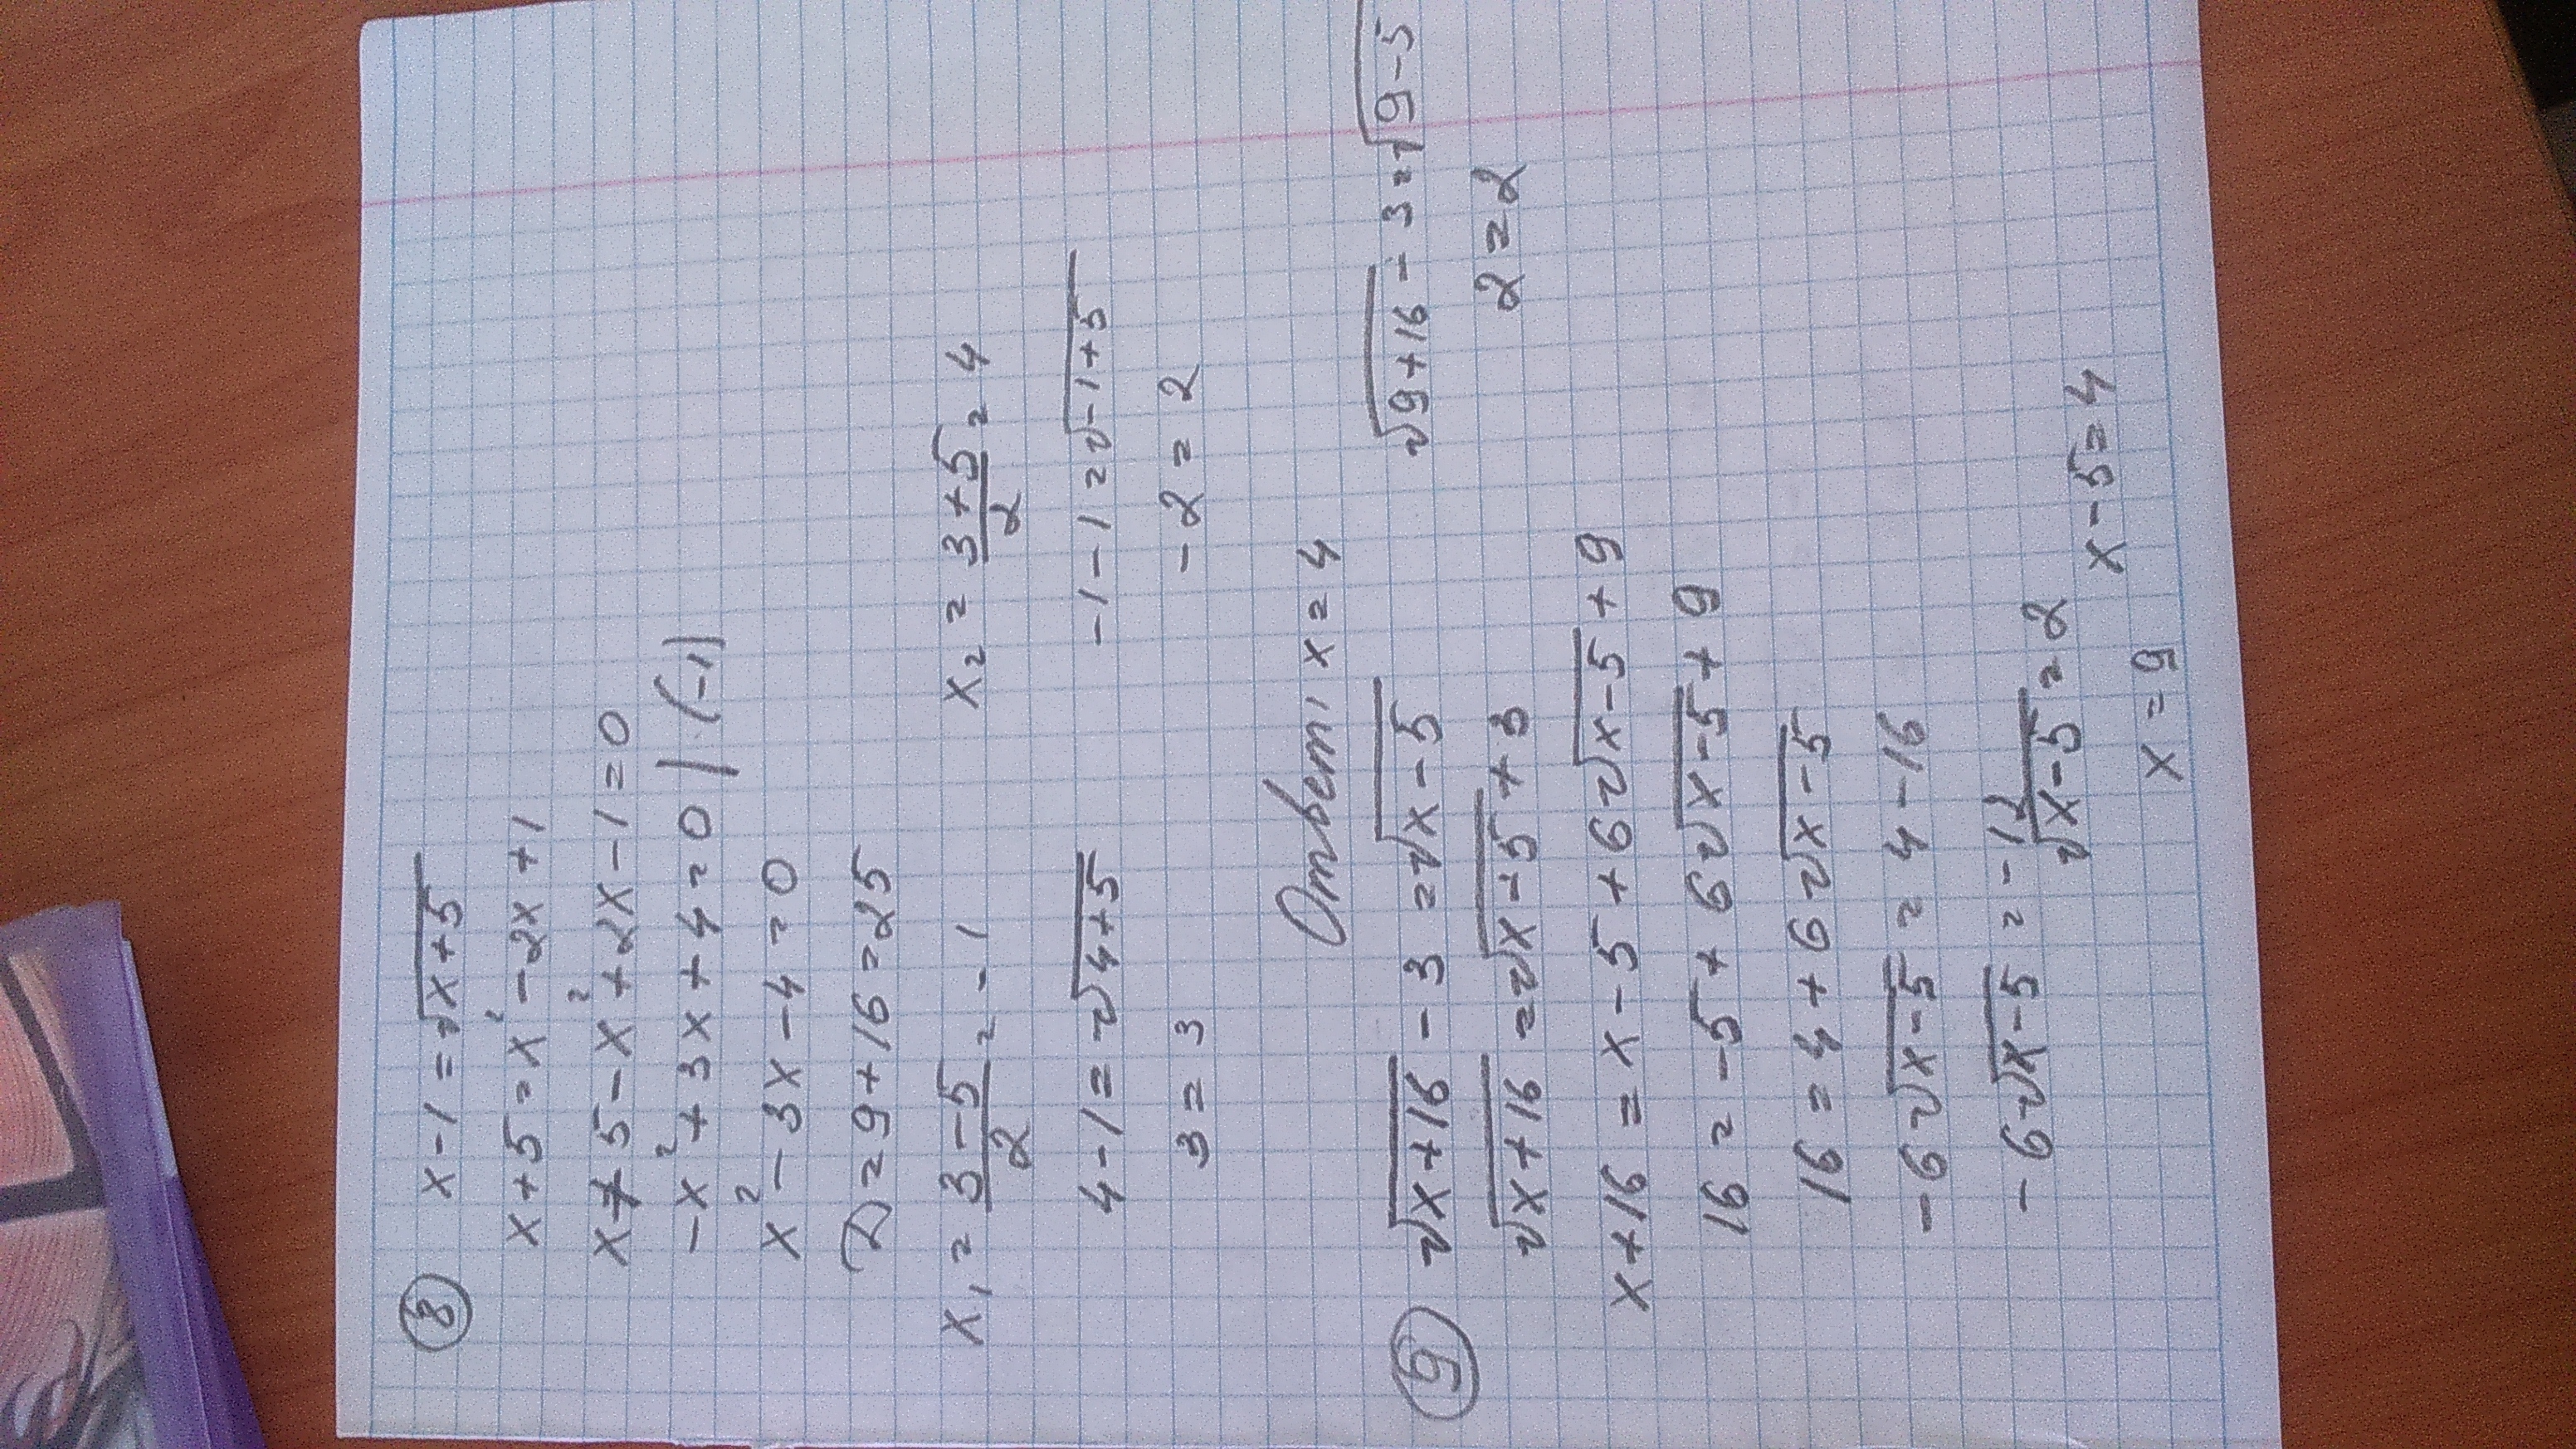 8 x-1=√x+5
x+5=x²-2x+1
x+5-x²+2x-1=0
-x²+3x+4=0 |·(-1)
x²-3x-4=0
D=9+16=25
x₁=3-5/2=-1 x₂=3+5/2=4
4-1=√4+5 -1-1=√-1+5
3=3 -2=2
Ответ: x=4
9 √x+16-3=√x-5 √9+16-3=√9-5
√x+16=√x-5+3 2=2
x+16=x-5+6√x-5+9
16=-5+6√x-5+9
16=4+6√x-5
-6√x-5=4-16
-6√x-5=-12
√x-5=2
x-5=4
x=9